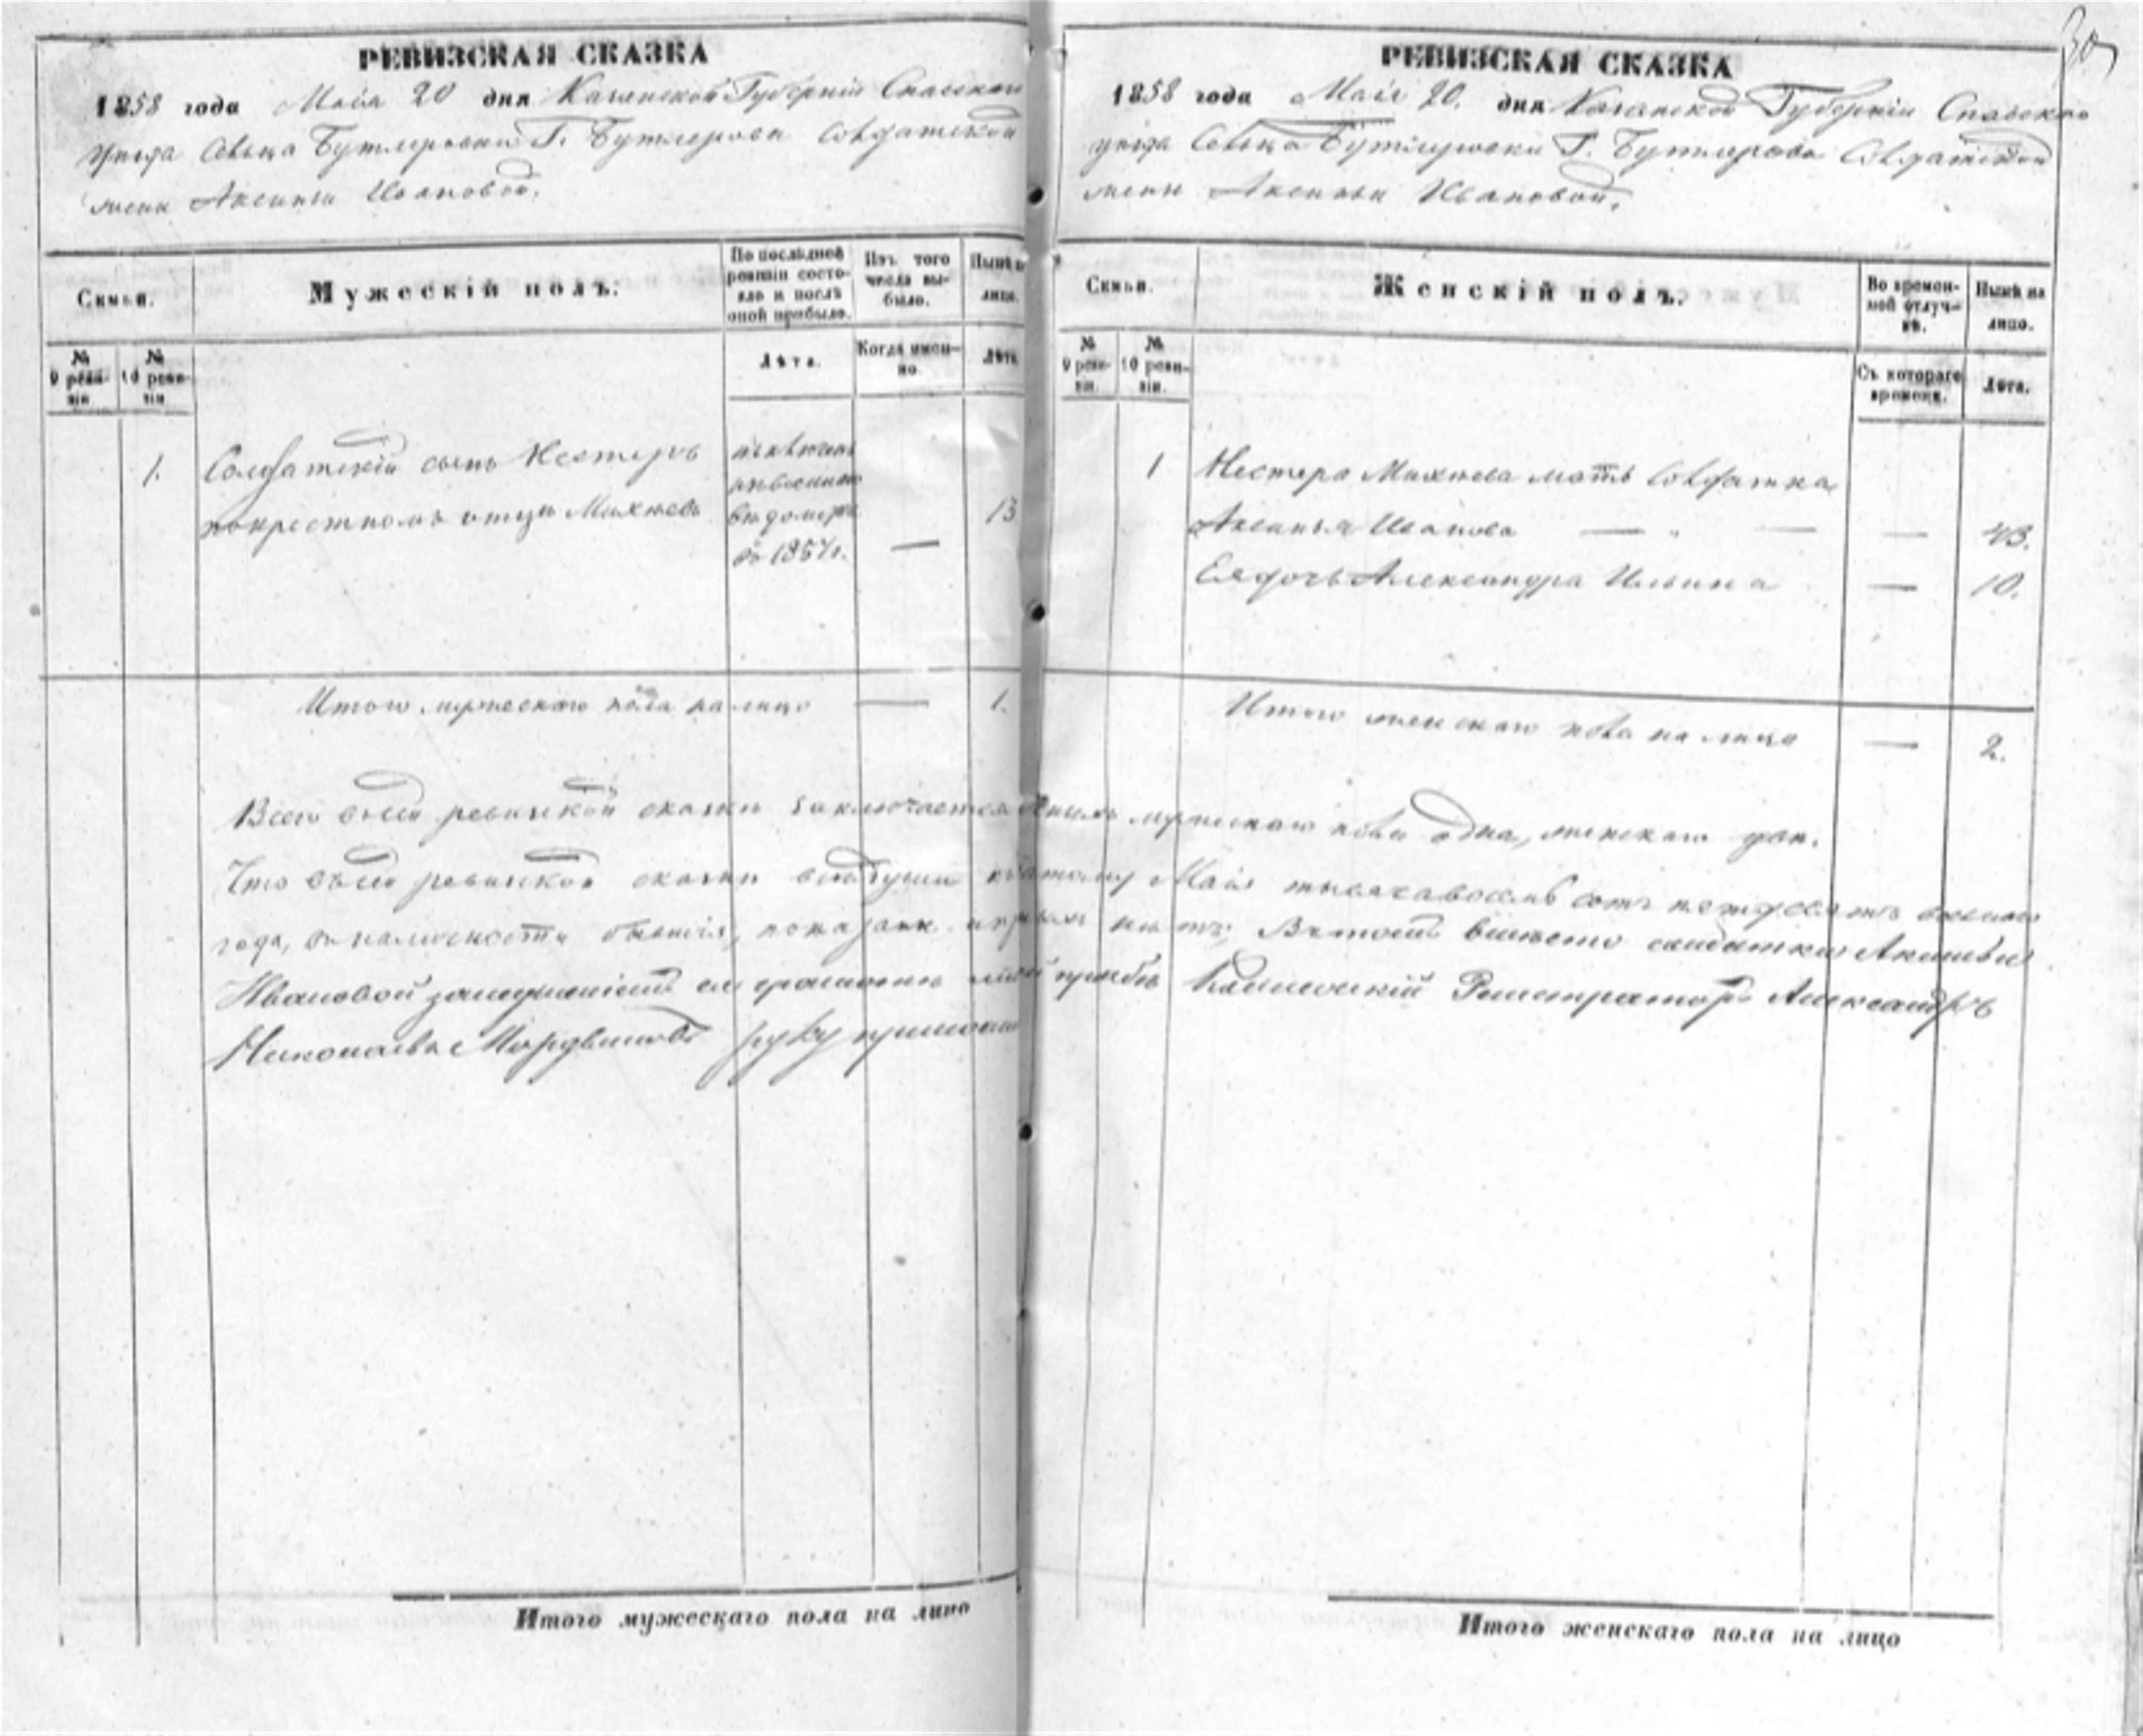 РЕВИЗСКАЯ СКАЗКА
1858 года Мая 20 дня Казанской Губерніи Спаскаго
уѣзда Сельца Бутлеровки Г. Бутлерова Солдатской
жены Аксиньи Ивановой.
Семьи.
Мужескій полъ:
По послѣдней
ревизіи состо-
яло и послѣ
оной прибыло.
Изъ того
числа вы-
было.
Нынѣ
лицо.
№
9 реви-
зіи
№
10 реви-
зіи
Лѣта.
Когда имен-
но.
Лѣта
1. Солдатскій сынъ Нестеръ
по крестному отцу Михѣевъ
13
1857 г. —
Итого мужескаго пола на лицо — 1.
РЕВИЗСКАЯ СКАЗКА
1858 года Мая 20. дня Казанской Губерніи Спаскаго
уѣзда Сельца Бутлеровки Г. Бутлерова Солдатской
жены Аксиньи Ивановой.
Семьи.
Женскій полъ.
Во времен-
ной отлуч-
кѣ.
Нынѣ на
лицо.
№
9 реви-
зіи.
№
10 реви-
зіи.
Съ котораго
времени.
Лѣта.
1 Нестера Михѣева мать Солдатка
Аксинья Иванова — — — 43.
Ея дочь Александра Ильина — 10.
Итого женскаго пола на лицо — 2.
Всего въ сей ревизской сказки заключается мужескаго пола одна, женскаго двѣ.
Что въ сей ревизской сказки всѣ души Мая тысяча восемь сотъ пятдесятъ восьмаго
года, въ наличности бывшія, показаны нѣтъ; Въ томъ вмѣсто солдатки Аксиньи
Ивановой за неумѣніемъ ея грамотѣ по прозбѣ Коллежскій Регистраторъ Александръ
Николаевъ Мордвиновъ руку приложилъ
Итого мужескаго пола на лицо
Итого женскаго пола на лицо